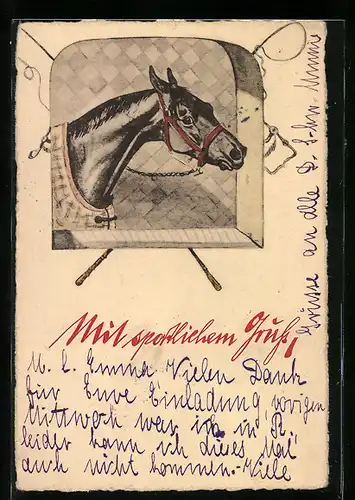 Mit sportlichem Gruß,
M. l. Emma Vielen Dank
für Eure Einladung, vorigen
Mittwoch war ich in R.
leider kann ich dieses Mal
auch nicht kommen.- Viele
Grüsse an alle D.